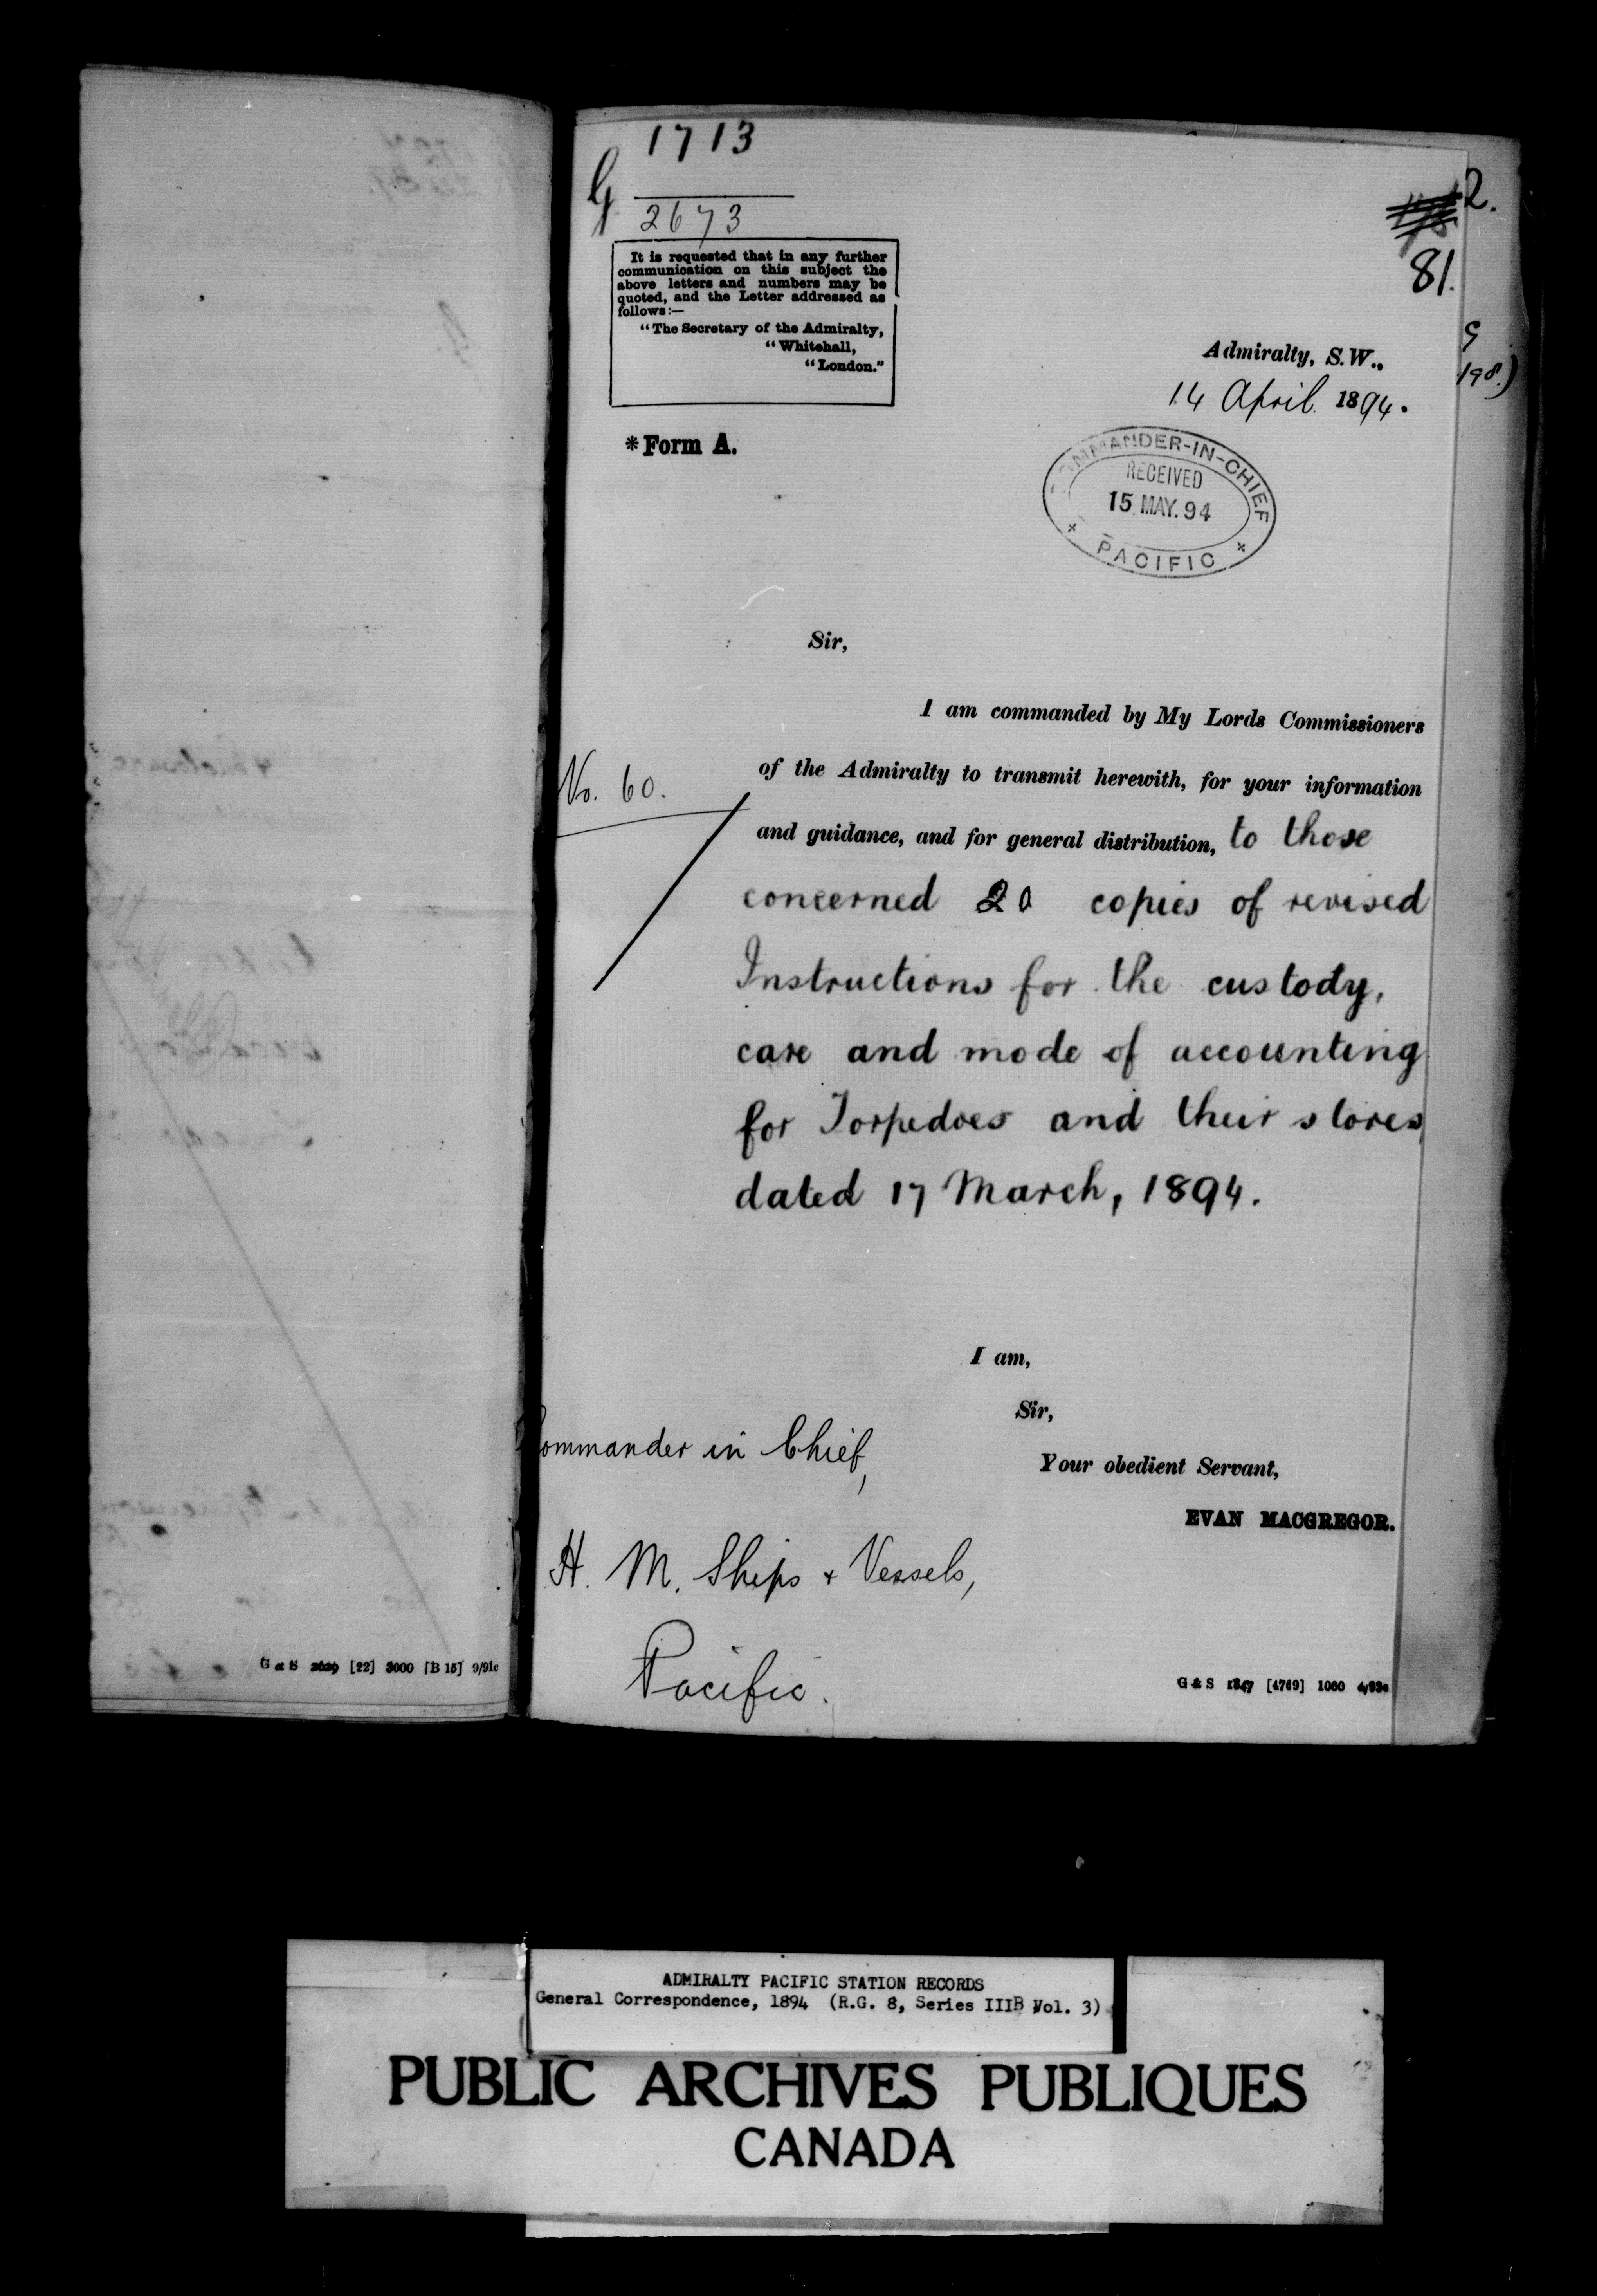 1713
G
2673
It is requested that in any further
communication on this subject the
above letters and numbers may be
quoted, and the Letter addressed as
follows:—
"The Secretary of the Admiralty,
"Whitehall,
"London."
2.
81.
Admiralty, S.W.,
14 April 1894.
*Form A.
COMMANDER-IN-CHIEF
RECEIVED
15 MAY. 94
PACIFIC
Sir,
I am commanded by My Lords Commissioners
of the Admiralty to transmit herewith, for your information
No. 60.
and guidance, and for general distribution, to those
concerned 20 copies of revised
Instructions for the custody,
care and mode of accounting
for Torpedoes and their stores
dated 17 March, 1894.
I am,
Sir,
Commander in Chief,
Your obedient Servant,
EVAN MACGREGOR.
H. M. Ships & Vessels,
Pacific.
G & S [22] 3000 [B 15] 9/91c
G & S 1847 [4769] 1000 4/93c
ADMIRALTY PACIFIC STATION RECORDS
General Correspondence, 1894 (R.G. 8, Series IIIB Vol. 3)
PUBLIC ARCHIVES PUBLIQUES
CANADA